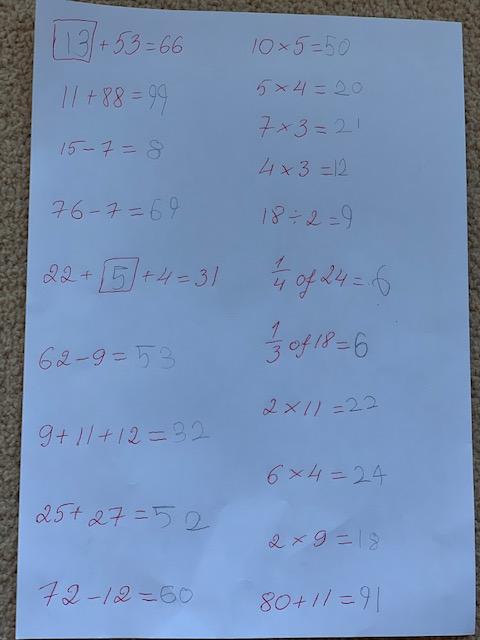 13 + 53 = 66
11 + 88 = 99
15 - 7 = 8
76 - 7 = 69
22 + 5 + 4 = 31
62 - 9 = 53
9 + 11 + 12 = 32
25 + 27 = 52
72 - 12 = 60
10 × 5 = 50
5 × 4 = 20
7 × 3 = 21
4 × 3 = 12
18 ÷ 2 = 9
1/4 of 24 = 6
1/3 of 18 = 6
2 × 11 = 22
6 × 4 = 24
2 × 9 = 18
80 + 11 = 91